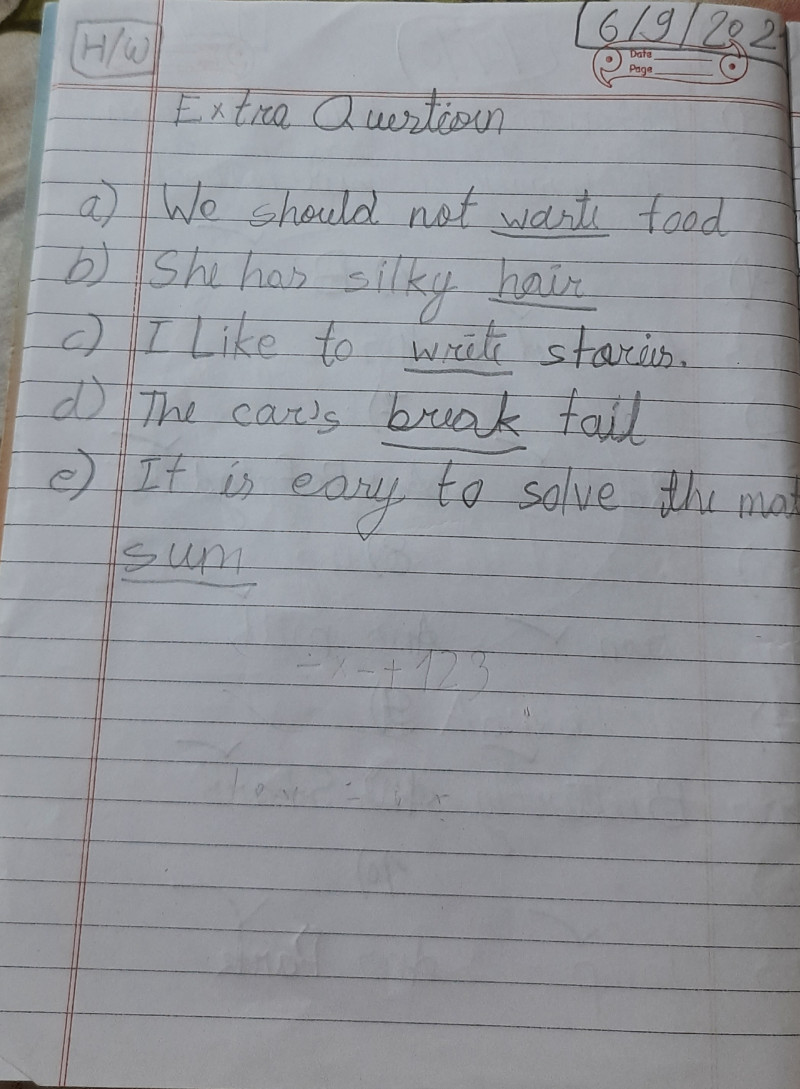 H/W
6/9/202
Date
Page
Extra Question
a) We should not waste food
b) She has silky hair
c) I Like to write stories.
d) The car's break fail
e) It is easy to solve the mat
sum
÷×-+123